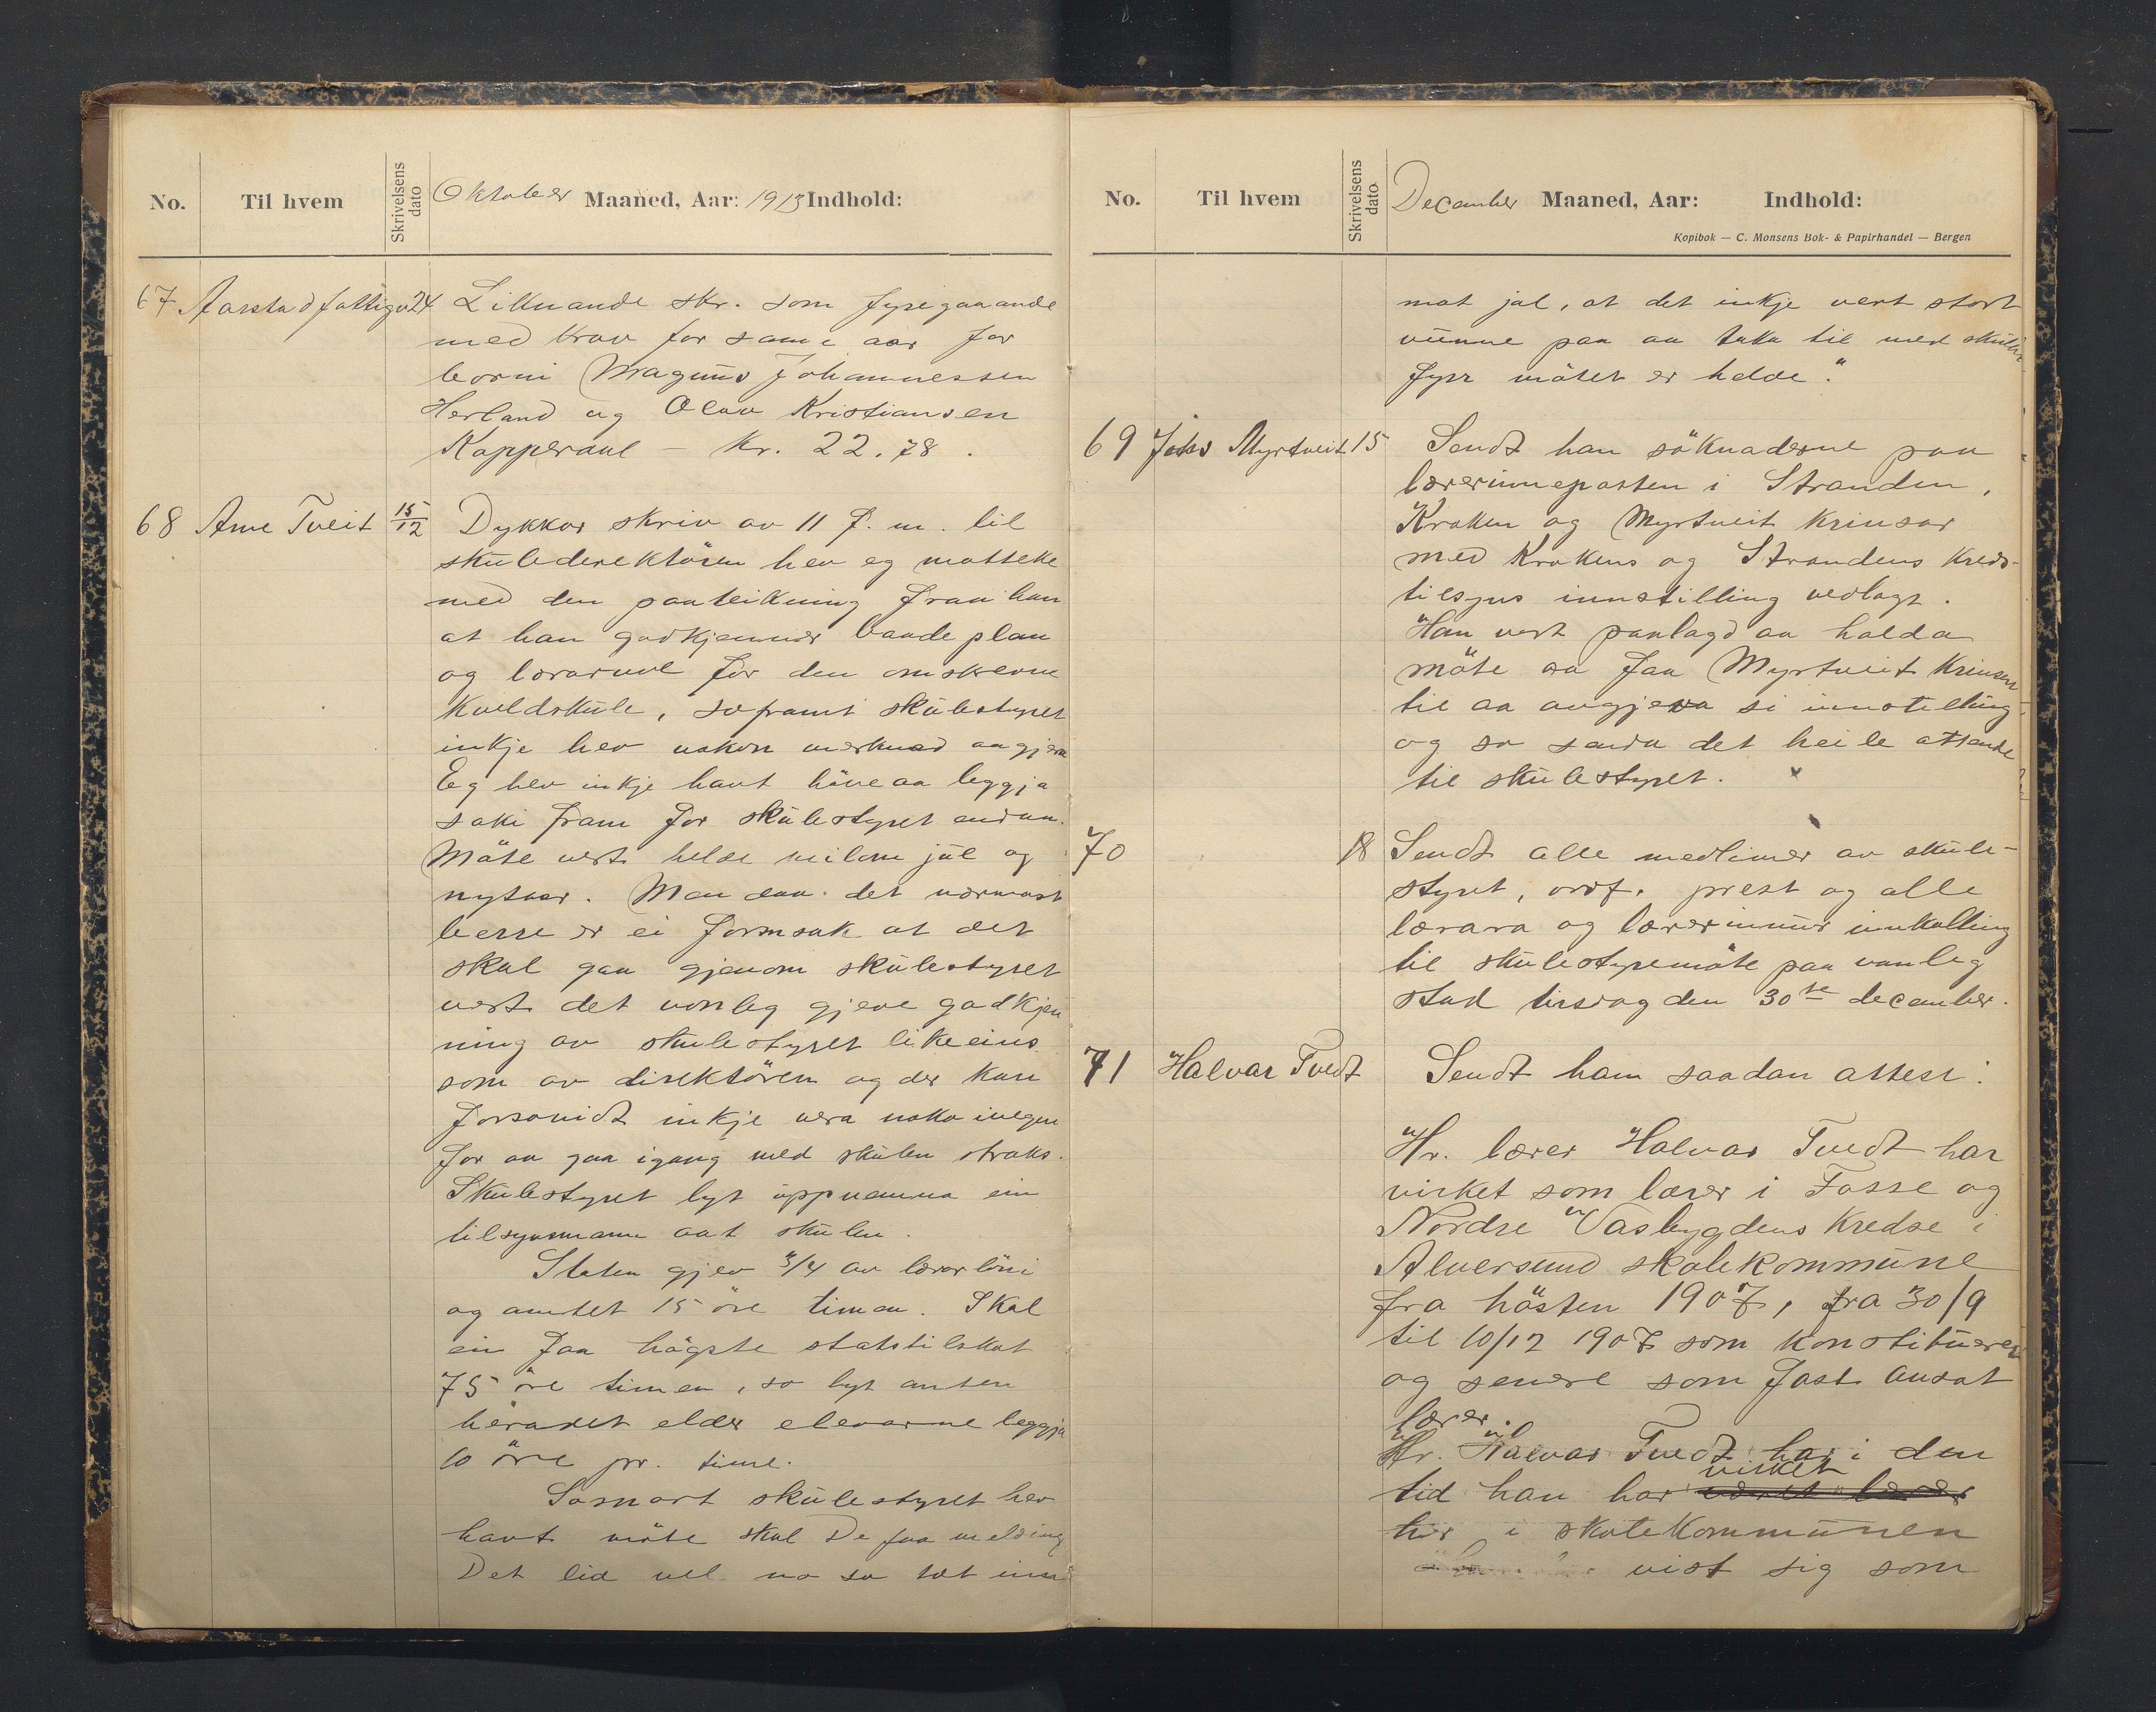 No. Til hvem Skrivelsens dato Oktober Maaned, Aar: 1913 Indhold:
67. Aarstad fattigv. 24 Liknande skr. som fyregaaande
med krav for same aar for
borni Magnus Johannessen
Herland og Olav Kristiansen
Kopperdal – kr. 22.78.
68 Arne Tveit 15/12 Dykkar skriv av 11 f. m. til
skuledirektören hev eg motteke
med den paateikning fraa han
at han godkjenner baade plan
og lærarval for den omskrevne
kveldskule, soframt skulestyret
inkje hev nokon merknad aa gjera
Eg hev inkje havt höve aa leggja
saki fram for skulestyret endaa.
Möte vert helde millom jul og
nytaar. Men daa det nærmast
berre er ei formsak at det
skal gaa gjenom skulestyret
vert det vonleg gjeve godkjen
ning av skulestyret likeeins
som av direktören og der kan
forsovidt inkje vera noko ivegen
for aa gaa igang med skulen straks.
Skulestyret lyt uppnemna ein
tilsynsmann aat skulen.
Staten gjev 3/4 av lærarlöni
og amtet 15 öre timen. Skal
ein faa högste statstilskot
75 öre timen, so lyt anten
heradet elder elevarne leggja
10 öre pr. time.
Sosnart skulestyret hev
havt möte skal De faa melding
Det lid vel no so tæt inn
No. Til hvem Skrivelsens dato December Maaned, Aar: Indhold:
Kopibok — C. Monsens Bok- & Papirhandel — Bergen
mot jol, at det inkje vert stort
vunne paa aa taka til med skulen
fyrr mötet er helde."
69 Johs Myrtveit 15 Sendt han söknaderne paa
lærerinneposten i Stranden,
Kroken og Myrtveit krinsar
med Krokens og Strandens kreds-
tilsyns innstilling vedlagt.
Han vert paalagd aa halda
möte paa Myrtveit krinsen
til aa avgjeva si innstelling
og so senda det heile attende
til skulestyret.
70 18 Sendt alle medlimer av skule-
styret, ordf. prest og alle
lærara og lærerinnur innkalling
til skulestyremöte paa vanleg
stad tirsdag den 30te december.
71 Halvar Tvedt Sendt ham saadan attest:
Hr. lærer Halvar Tvedt har
virket som lærer i Fosse og
Nordre Vasbygdens kredse i
Alversund skolekommune
fra hösten 1907, fra 30/9
til 10/12 1907 som konstitueret
og senere som fast ansat
lærer.
Hr. Halvar Tvedt har i den
tid han har virket været lærer
her i skolekommunen
vist sig som